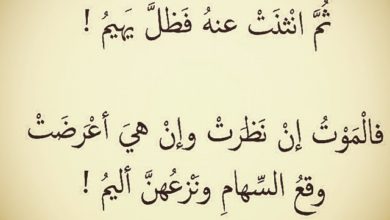 ثُمَّ انْثنَتْ عنهُ فَظلَّ يَهيمُ !
فالْمَوْتُ إنْ نَظَرَتْ وإنْ هيَ أعْرَضَتْ
وقعُ السِّهامِ ونَزْعُهنَّ أليمُ !